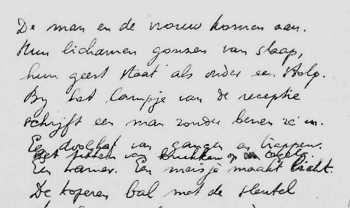 De man en de vrouw komen aan.
Hun lichamen gonzen van slaap,
hun geest staat als onder een stolp.
By het lampje van de receptie
schrijft een man zonder benen ze in.
Een doolhof van gangen en trappen.
Het tikken van krukken op de tegels
Een kamer. Een meisje maakt licht.
De koperen bal met de sleutel